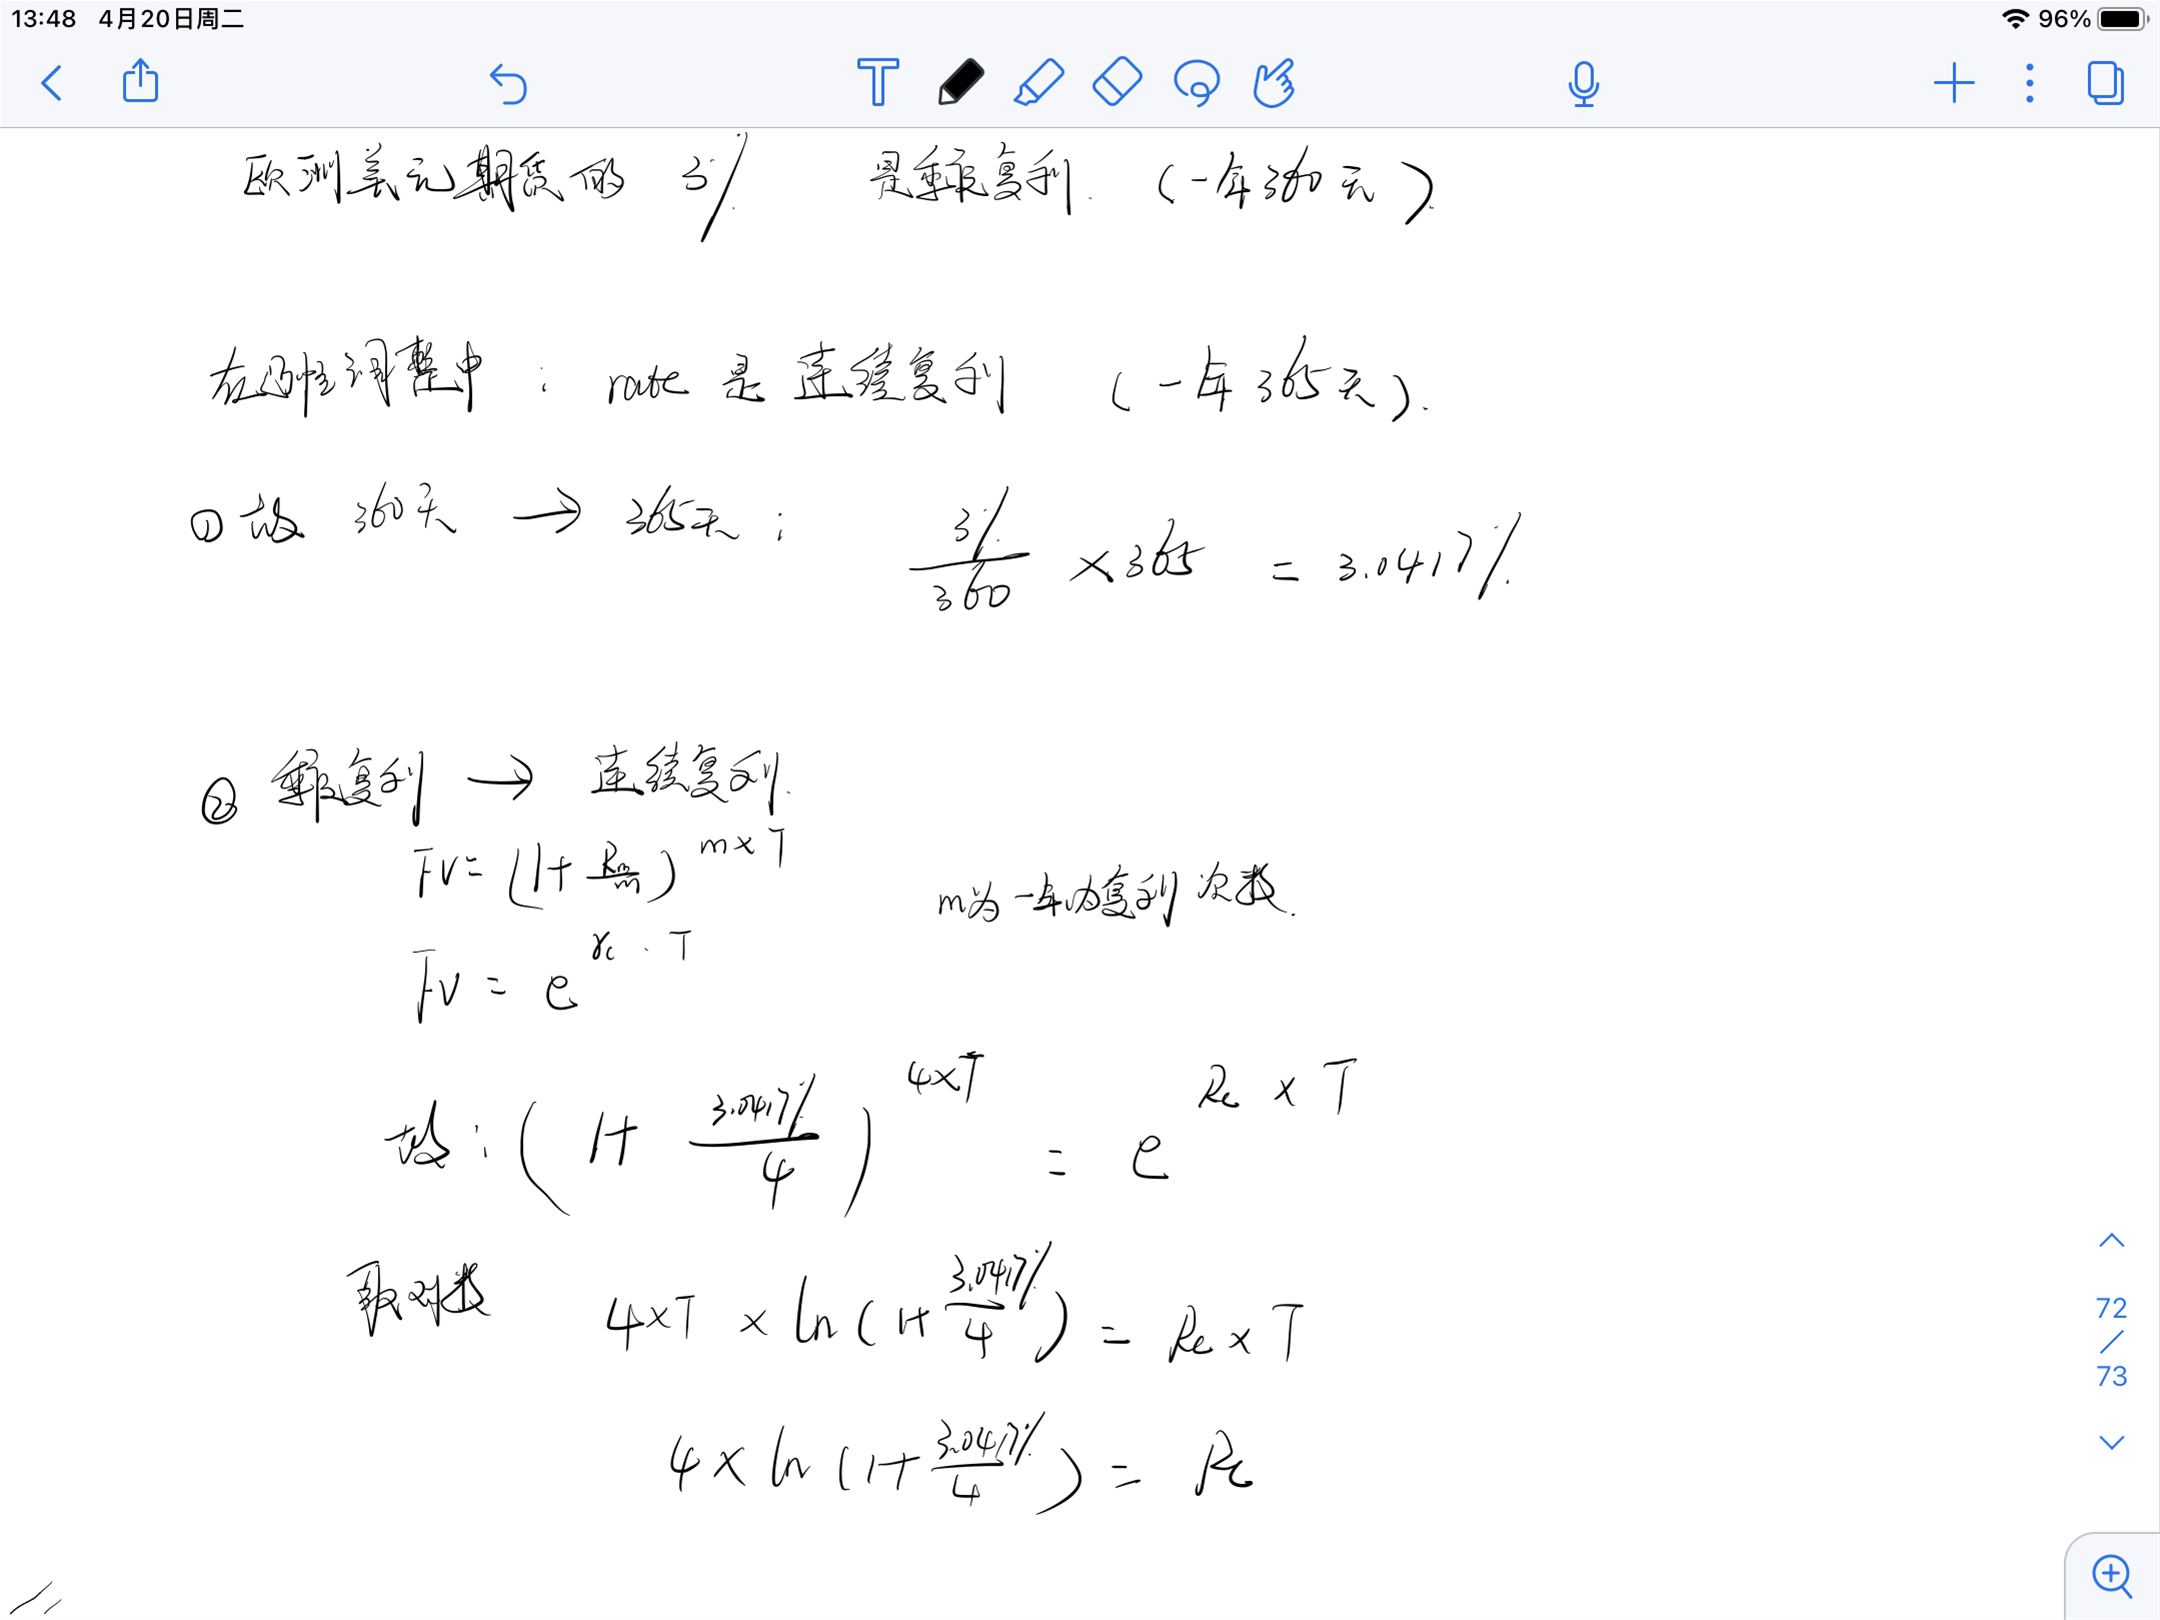 13:48 4月20日周二 96%
欧洲美元期货的 3% 是季度复利. (一年360天).
在凸性调整中: rate 是 连续复利 (一年365天).
① 故 360天 → 365天: 3%/360 × 365 = 3.0417%.
② 季度复利 → 连续复利.
FV = (1+ Rm/m)^(m×T)
m为一年内复利次数.
FV = e^(rc · T)
故: (1+ 3.0417%/4)^(4×T) = e^(Rc × T)
取对数 4×T × ln(1+ 3.0417%/4) = Rc × T
4 × ln(1+ 3.0417%/4) = Rc
72
/
73